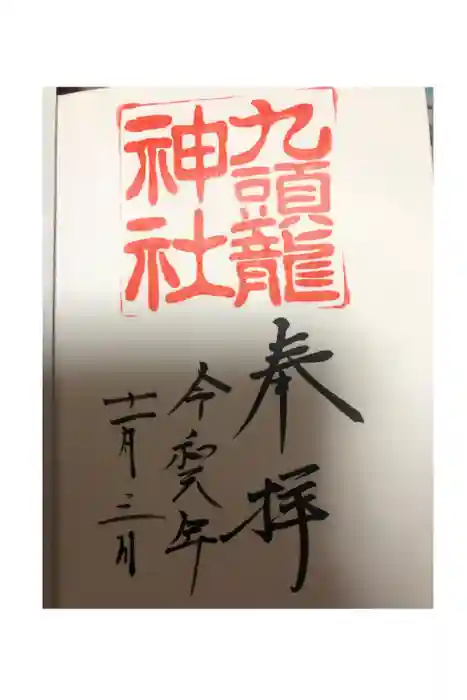 九頭龍
神社
奉拝
令和年
十一月三日